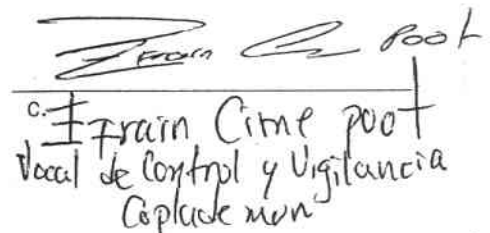 Efrain C Poot
C. Efrain Cime poot
Vocal de Control y Vigilancia
Coplademun